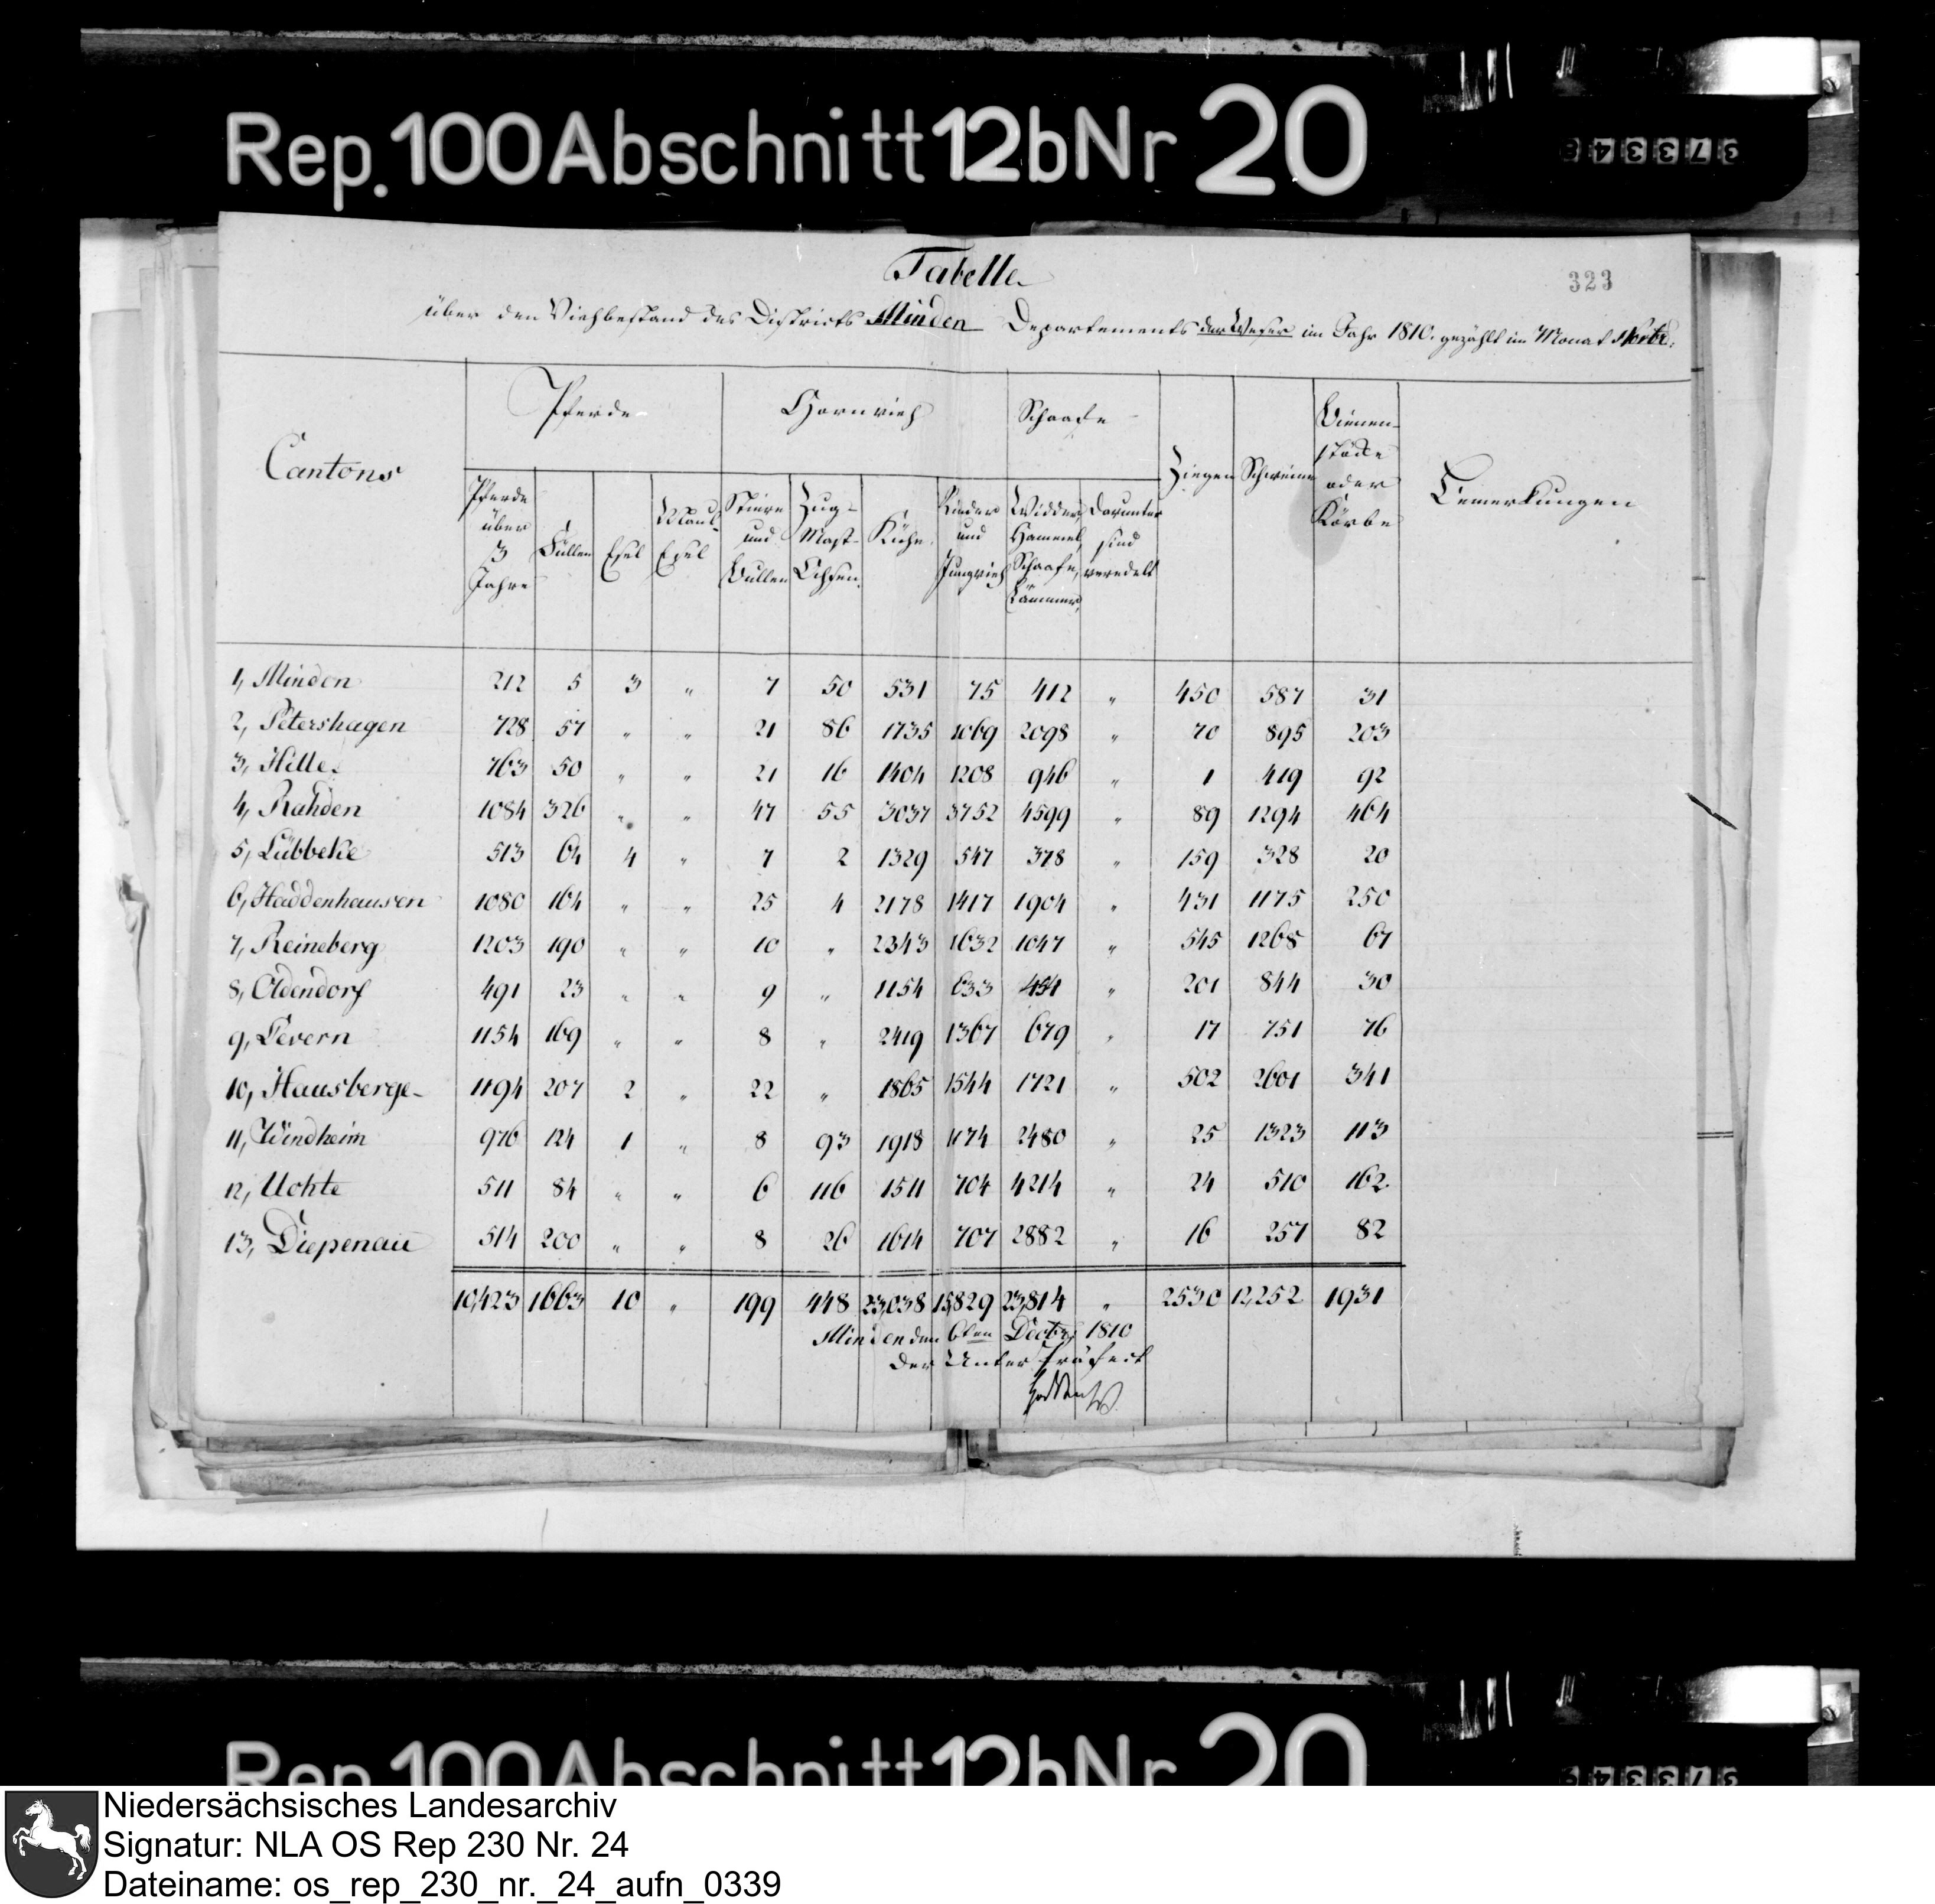 Rep. 100 Abschnitt 12b Nr 20
373348
323
Tabelle
über den Viehbestand des Districts Minden Departements der Weser im Jahr 1810. gezählt im Monat Novbr.
Cantons | Pferde | Hornvieh | Schaafe | Ziegen | Schweine | Bienenstöcke oder Körbe | Bemerkungen
Pferde über 3 Jahre | Füllen | Esel | Maul-Esel | Stiere und Bullen | Zug- Mast- Ochsen. | Kühe | Rinder und Jungvieh | Widder, Hammel, Schaafe, Lämmer, | Darunter sind veredelt
1, Minden 212 5 3 " 7 50 531 75 412 " 450 587 31
2, Petershagen 728 57 " " 21 86 1735 1069 2098 " 70 895 203
3, Hille 763 50 " " 21 16 1404 1208 946 " 1 419 92
4, Rahden 1084 326 " " 47 55 3037 3752 4599 " 89 1294 464
5, Lübbeke 513 64 4 " 7 2 1329 547 378 " 159 328 20
6, Haddenhausen 1080 164 " " 25 4 2178 1417 1904 " 431 1175 250
7, Reineberg 1203 190 " " 10 " 2343 1632 1047 " 545 1268 67
8, Oldendorf 491 23 " " 9 " 1154 633 454 " 201 844 30
9, Levern 1154 169 " " 8 " 2419 1367 679 " 17 751 76
10, Hausberge 1194 207 2 " 22 " 1865 1544 1721 " 502 2601 341
11, Windheim 976 124 1 " 8 93 1918 1174 2480 " 25 1323 113
12, Uchte 511 84 " " 6 116 1511 704 4214 " 24 510 162
13, Diepenau 514 200 " " 8 26 1614 707 2882 " 16 257 82
10,423 1663 10 " 199 448 23,038 15,829 23,814 " 2530 12,252 1931
Minden den 6ten Decbr 1810
Der Unter Präfect
Rep. 100 Abschnitt 12b Nr 20
Niedersächsisches Landesarchiv
Signatur: NLA OS Rep 230 Nr. 24
Dateiname: os_rep_230_nr._24_aufn_0339